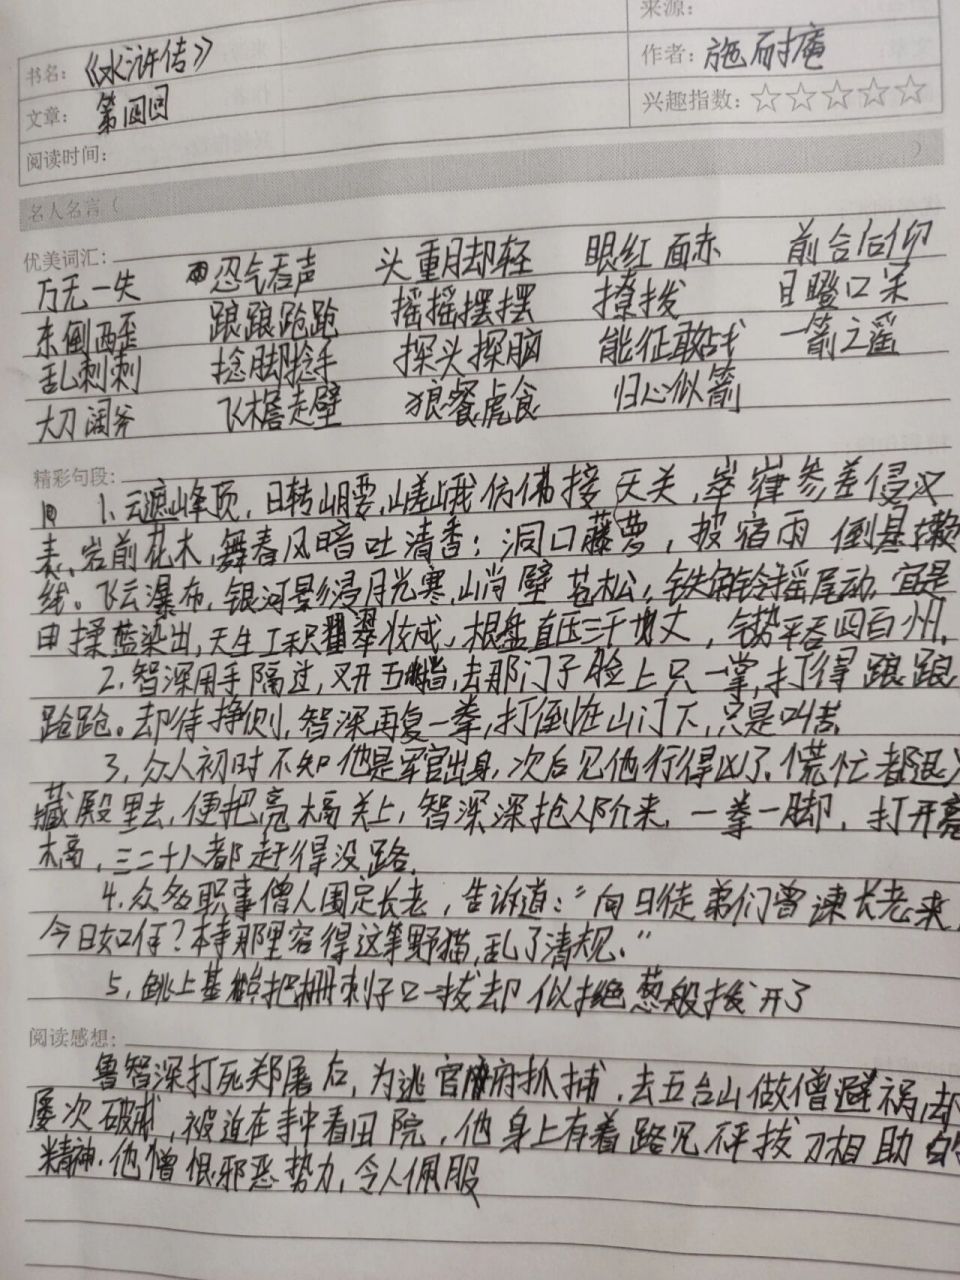 来源：
书名：《水浒传》
作者：施耐庵
文章：第四回
兴趣指数：☆☆☆☆☆
阅读时间：
名人名言（ ）
优美词汇：
万无一失 忍气吞声 头重脚轻 眼红面赤 前合后仰
东倒西歪 踉踉跄跄 摇摇摆摆 撩拨 目瞪口呆
乱刺刺 捻脚捻手 探头探脑 能征敢战 一箭之遥
大刀阔斧 飞檐走壁 狼餐虎食 归心似箭
精彩句段：
1.云遮峰顶，日转山腰，嵯峨仿佛接天关，崒嵂参差侵汉
表、岩前花木，舞春风暗吐清香；洞口藤萝，披宿雨倒悬嫩
线。飞云瀑布，银河影浸月光寒，峭壁苍松，铁角铃摇尾动，宜是
由揉蓝染出，天生工积翠妆成、根盘直压三千丈，气势平吞四百州，
2.智深用手隔过，叉开五指，去那门子脸上只一掌，打得踉踉
跄跄。却待挣侧，智深再复一拳，打倒在山门下，只是叫苦
3、众人初时不知他是军官出身，次后见他行得凶了、慌忙都退入
藏殿里去，便把亮槅关上，智深深抢入阶来，一拳一脚，打开亮
槅，三二十人都赶得没路，
4.众多职事僧人围定长老，告诉道：“向日徒弟们曾谏长老来，
今日如何？本寺那里容得这等野猫，乱了清规、”
5、跳上基台把栅刺子只一拔却似撧葱般拔开了
阅读感想：
鲁智深打死郑屠后，为逃官府抓捕，去五台山做僧避祸，却
屡次破戒，被迫在寺中看田院，他身上有着路见不平拔刀相助的
精神，他憎恨邪恶势力，令人佩服